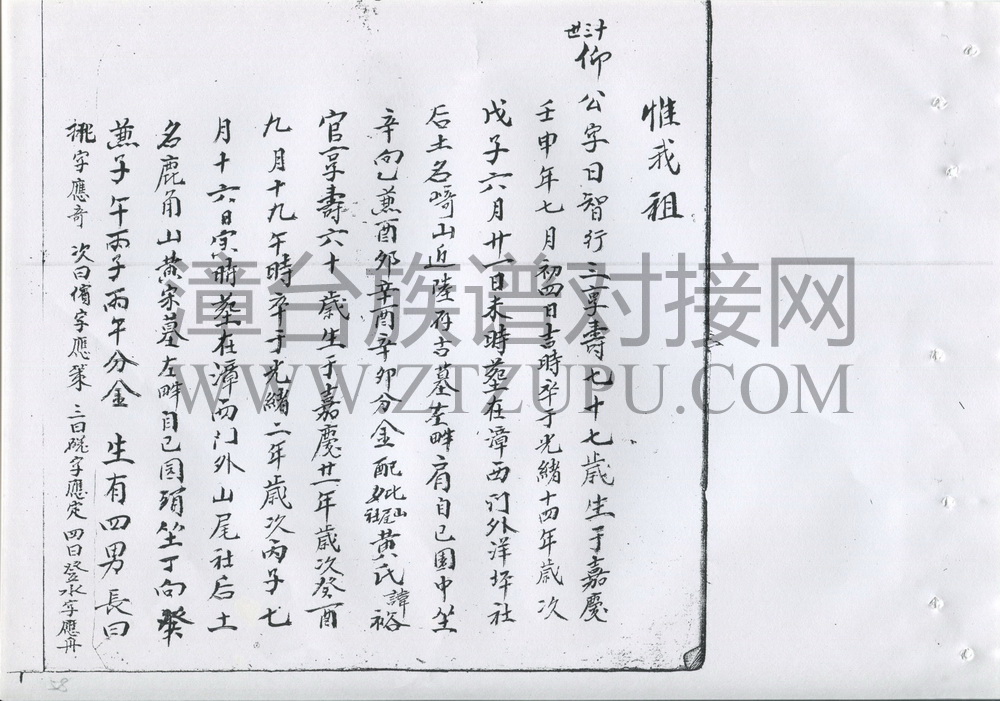 惟我祖
十三世
仰公字日智行三享壽七十七歲生于嘉慶
壬申年七月初四日吉時卒于光緒十四年歲次
戊子六月廿一日未時塟在漳西门外洋坪社
后土名崎山近陸存古墓左畔肩自己園中坐
辛向乙兼酉卯辛酉辛卯分金配妣山尾社女黄氏諱裕
官享壽六十歲生于嘉慶廿一年歲次癸酉
九月十九午時卒于光緒二年歲次丙子七
月十六日寅時塟在漳西门外山尾社后土
名鹿角山黄宗墓左畔自己园頭坐丁向癸
兼子午丙子丙午分金 生有四男長曰
字應奇 次曰儐字應策 三曰砚字應定 四曰登水字應舟
漳台族谱对接网
WWW.ZTZUPU.COM
58